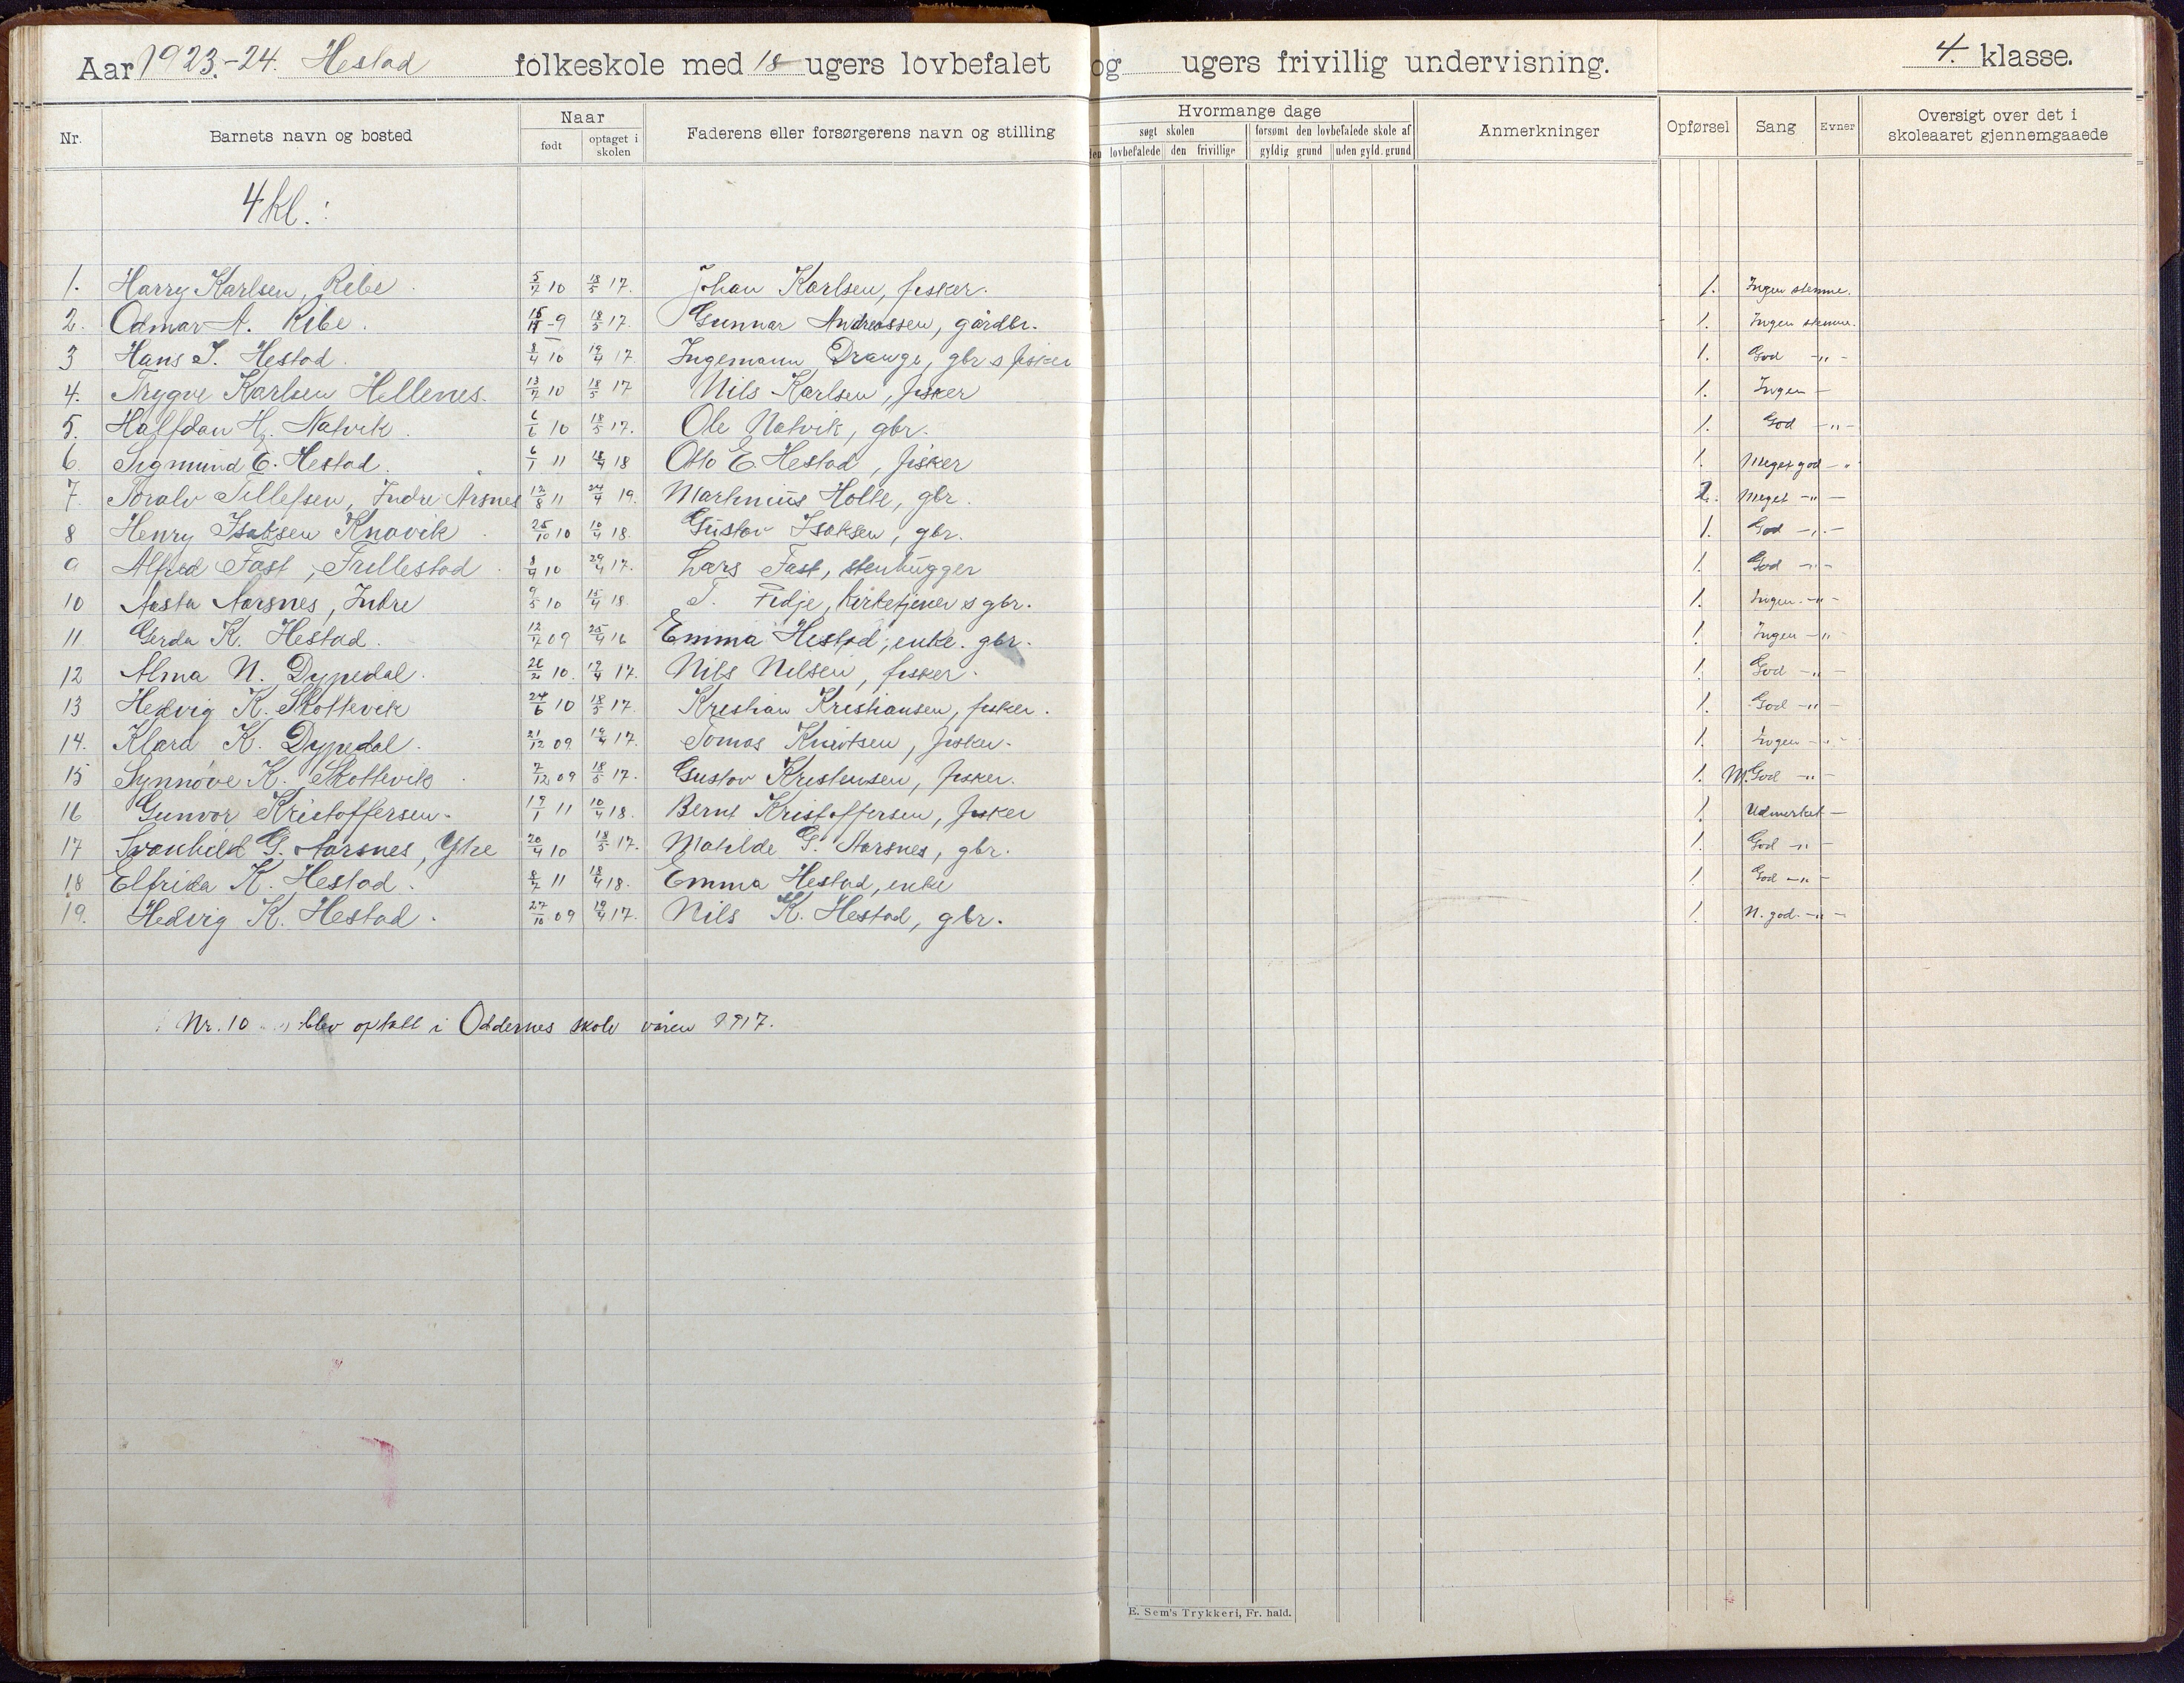 Aar 1923-24. Hestad folkeskole med 18 ugers lovbefalet og ugers frivillig undervisning. 4. klasse.
Nr. Barnets navn og bosted Naar født optaget i skolen Faderens eller forsørgerens navn og stilling Hvormange dage søgt skolen den lovbefalede den frivillige forsømt den lovbefalede skole af gyldig grund uden gyld. grund Anmerkninger Opførsel Sang Evner Oversigt over det i skoleaaret gjennemgaaede
4 kl.:
1. Harry Karlsen, Ribe. 5/2 10 18/5 17. Johan Karlsen, fisker. 1. Ingen stemme.
2. Odmar A. Ribe. 18/5 17. Gunnar Andreassen, gårdbr. 1. Ingen stemme.
3 Hans I. Hestad. 8/4 10 19/4 17. Ingemann Drange, gbr. & fisker 1. God -"-
4. Trygve Karlsen Hellenes. 13/2 10 18/5 17 Nils Karlsen, fisker 1. Ingen -
5. Halfdan Hj. Natvik. 6/6 10 18/5 17. Ole Natvik, gbr. 1. God -"-
6. Sigmund E. Hestad. 6/1 11 18/4 18 Otto E. Hestad, fisker 1. Meget god -"-
7. Toralv Tellefsen, Indre Årsnes 12/8 11 24/4 19. Martinius Holte, gbr. 2. Meget -"-
8 Henry Isaksen Knavik 25/10 10 10/4 18. Gustav Isaksen, gbr. 1. God -"-
9 Alfred Fast, Trellestad. 8/9 10 29/4 17. Lars Fast, stenhugger 1. God -"-
10 Aasta Aarsnes, Indre 9/5 10 15/4 18. T. Fidje, kirketjener & gbr. 1. Ingen -"-
11 Gerda K. Hestad. 12/2 09 25/4 16 Emma Hestad, enke. gbr. 1. Ingen -"-
12 Alma N. Dypedal. 26/2 10. 19/4 17. Nils Nilsen, fisker. 1. God -"-
13 Hedvig K. Skottevik 24/6 10 18/5 17. Kristian Kristiansen, fisker. 1. God -"-
14. Klara K. Dypedal. 21/12 09 19/4 17. Tomas Knutsen, fisker. 1. Ingen -"-
15 Synnøve K. Skottevik. 7/12 09 18/5 17. Gustav Kristensen, fisker. 1. M. God -"-
16 Gunvor Kristoffersen. 19/1 11 10/4 18. Bernt Kristoffersen, fisker 1. Udmerket -
17 Svanhild G. Aarsnes, Ytre 20/4 10 18/5 17. Matilde G. Aarsnes, gbr. 1. God -"-
18 Elfrida K. Hestad. 8/2 11 18/4 18. Emma Hestad, enke 1. God -"-
19. Hedvig K. Hestad. 27/10 09 19/4 17. Nils K. Hestad, gbr. 1. N. god. -"-
Nr. 10 blev optatt i Oddernes skole våren 1917.
E. Sem's Trykkeri, Fr. hald.